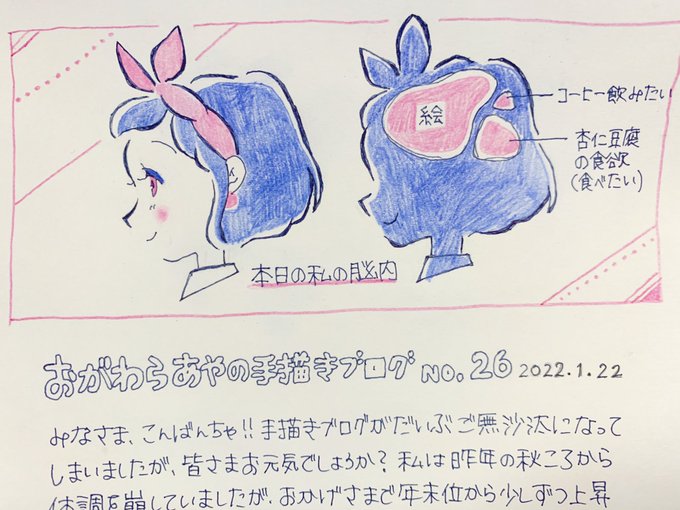 絵
コーヒー飲みたい
杏仁豆腐
の食欲
(食べたい)
本日の私の脳内
おがわらあやの手描きブログ NO.26 2022.1.22
みなさま、こんばんちゃ!!手描きブログがだいぶご無沙汰になって
しまいましたが、皆さまお元気でしょうか?私は昨年の秋ころから
体調を崩していましたが、おかげさまで年末位から少しずつ上昇